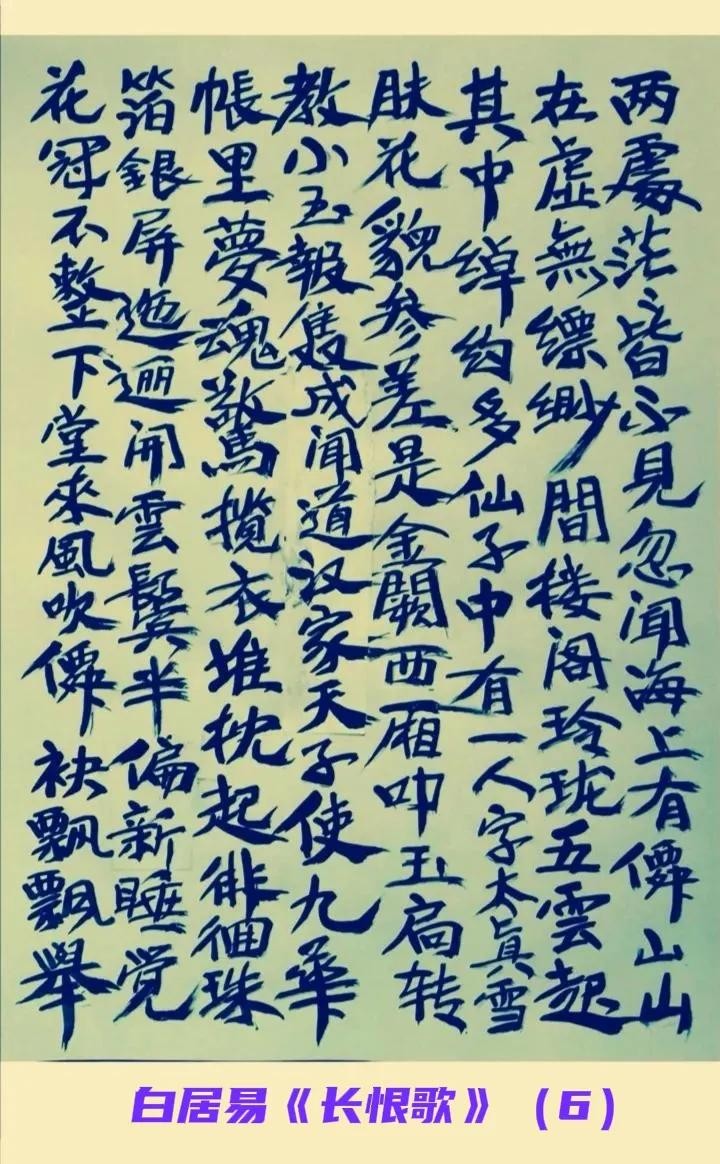 两處茫々皆不見忽闻海上有僊山山
在虚無缥缈間楼阁玲珑五雲起
其中绰约多仙子中有一人字太真雪
肤花貌参差是金闕西厢叩玉扃转
教小玉報雙成闻道汉家天子使九華
帳里夢魂驚揽衣堆枕起徘徊珠
箔銀屏迤逦開雲鬓半偏新睡觉
花冠不整下堂來風吹僊袂飘飘舉
白居易《长恨歌》（6）